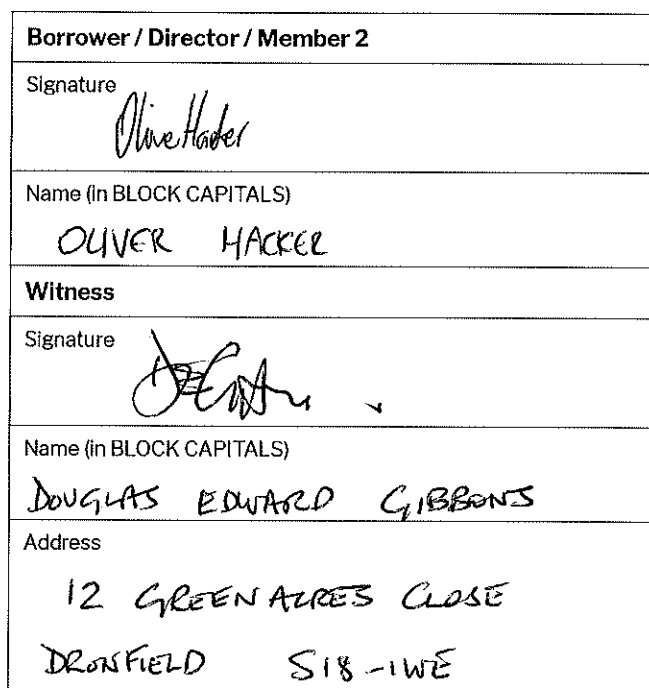 Borrower / Director / Member 2
Signature
Name (in BLOCK CAPITALS)
OLIVER HACKER
Witness
Signature
Name (in BLOCK CAPITALS)
DOUGLAS EDWARD GIBBONS
Address
12 GREENACRES CLOSE
DRONFIELD S18-1WE